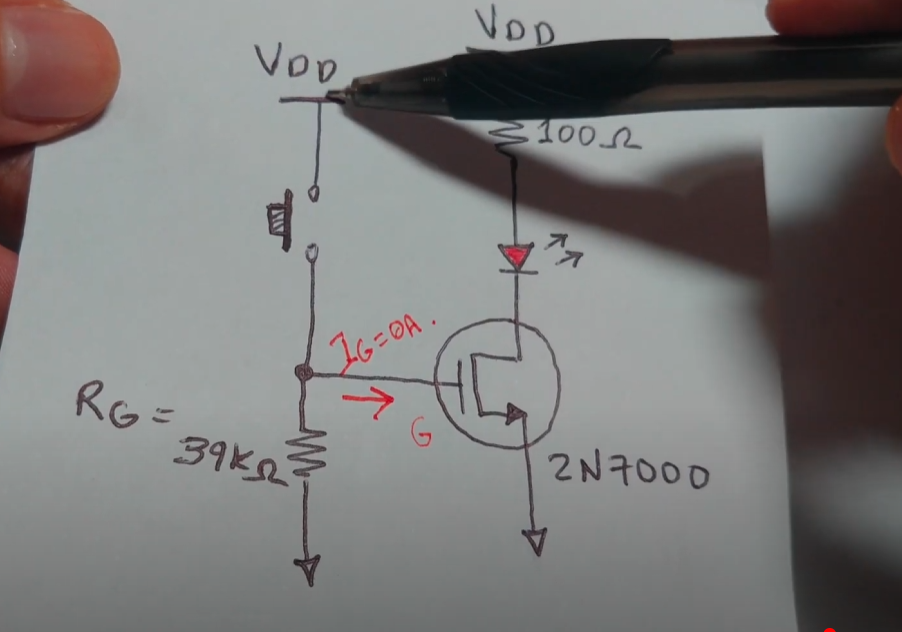 VDD
VDD
100Ω
IG=0A.
RG=
39KΩ
G
2N7000